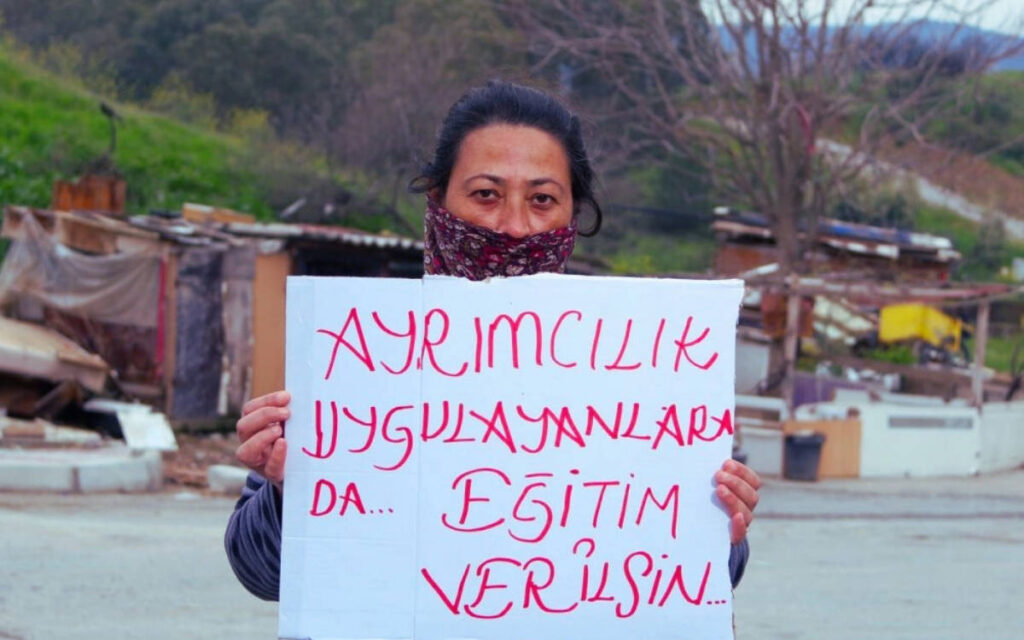 AYRIMCILIK
UYGULAYANLARA
DA... EĞİTİM
VERİLSİN...